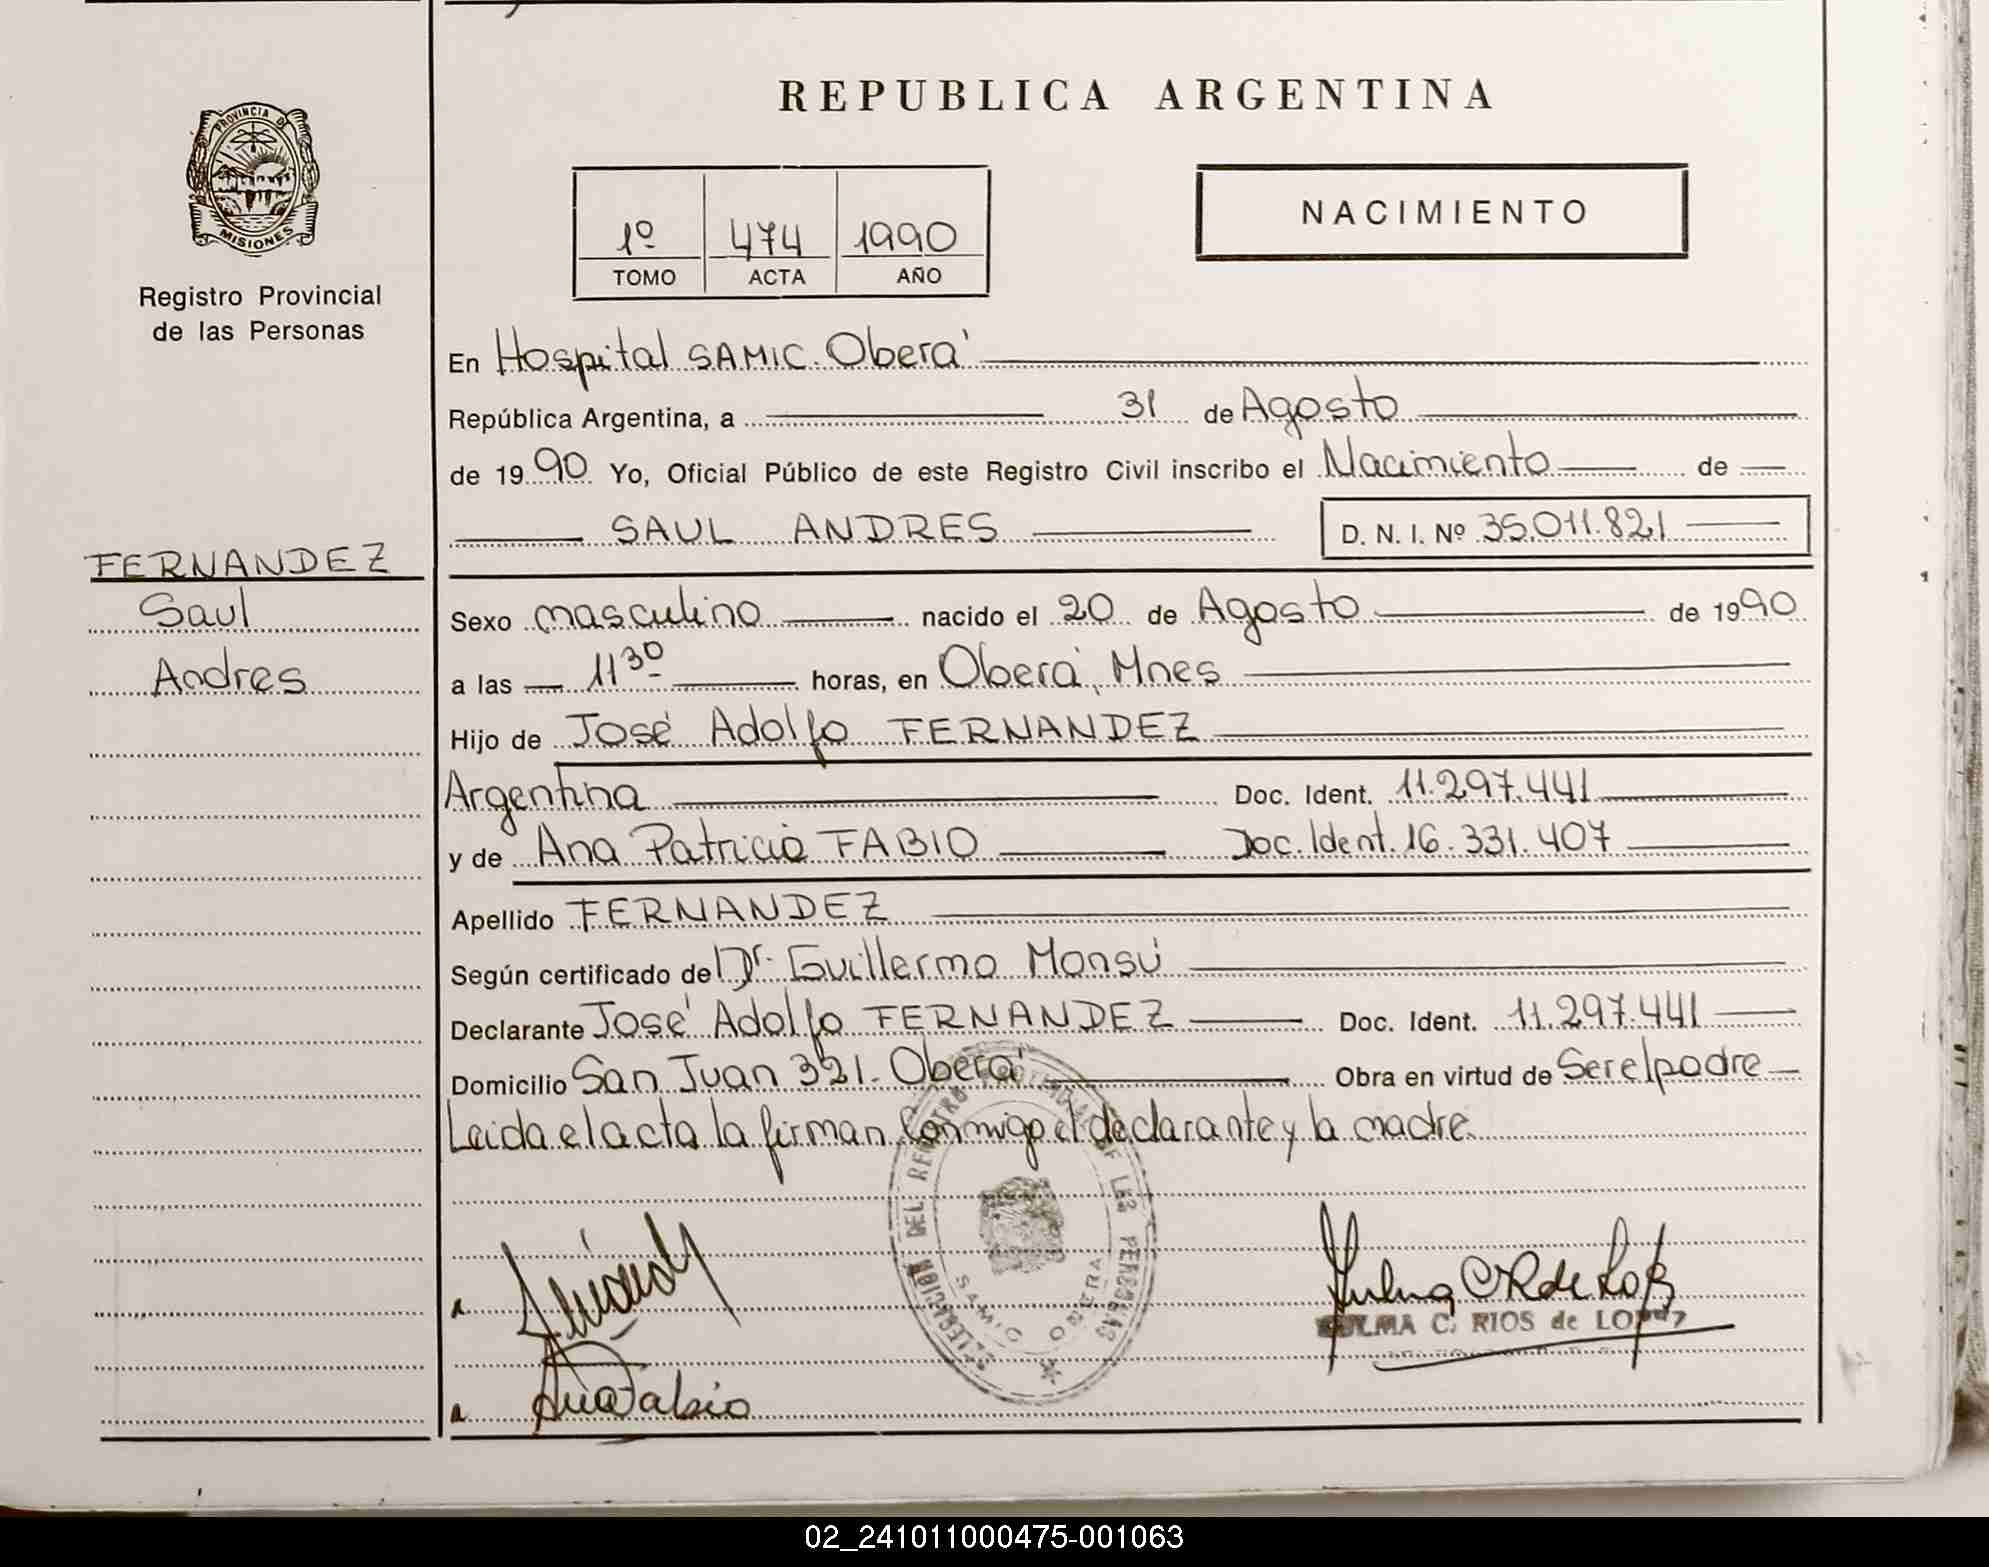 REPUBLICA ARGENTINA
PROVINCIA DE
MISIONES
Registro Provincial
de las Personas
1º 474 1990
TOMO ACTA AÑO
NACIMIENTO
En Hospital SAMIC. Oberá
República Argentina, a 31 de Agosto
de 1990 Yo, Oficial Público de este Registro Civil inscribo el Nacimiento de
SAUL ANDRES D. N. I. Nº 35.011.821
FERNANDEZ
Saul
Andres
Sexo masculino nacido el 20 de Agosto de 1990
a las 11³⁰ horas, en Oberá, Mnes
Hijo de José Adolfo FERNANDEZ
Argentina Doc. Ident. 11.297.441
y de Ana Patricia FABIO Doc. Ident. 16.331.407
Apellido FERNANDEZ
Según certificado de Dr. Guillermo Monsú
Declarante José Adolfo FERNANDEZ Doc. Ident. 11.297.441
Domicilio San Juan 321. Oberá Obra en virtud de Ser el padre
Leida el acta la firman conmigo el declarante y la madre
DEL REGISTRO DE LAS PERSONAS
SAMIC OBERA
C. RIOS de LOPEZ
Ana Fabio
02_241011000475-001063